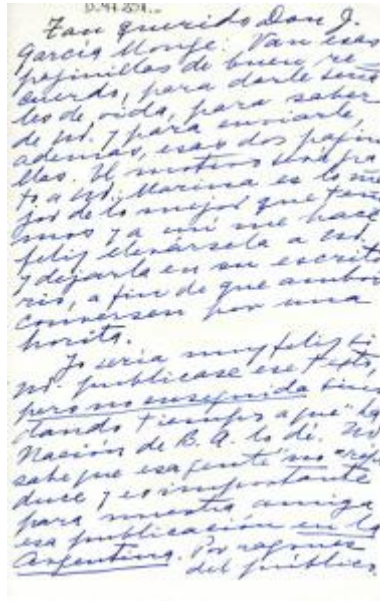 Tan querido Don J.
García Monje: Van esas
paginillas de buen re
cuerdo, para darle seña
les de vida, para saber
de Ud. y para enviarle,
además, esas dos pagini
llas. El
to a Ud. Marina es lo me
jor de lo mejor que tene
mos y a mí me hace
feliz elevársela a Ud.
y dejarla en su escrito
rio, a fin de que ambos
conversen por una
horita.
Yo sería muy feliz si
Ud. publicase ese texto,
pero no enseguida sino
dando tiempo a que "La
Nación" de B. A. lo dé. Ud.
sabe que esa gente no "repro
duce" y es importante
para nuestra amiga
esa publicación en la
Argentina. Por razones
del público